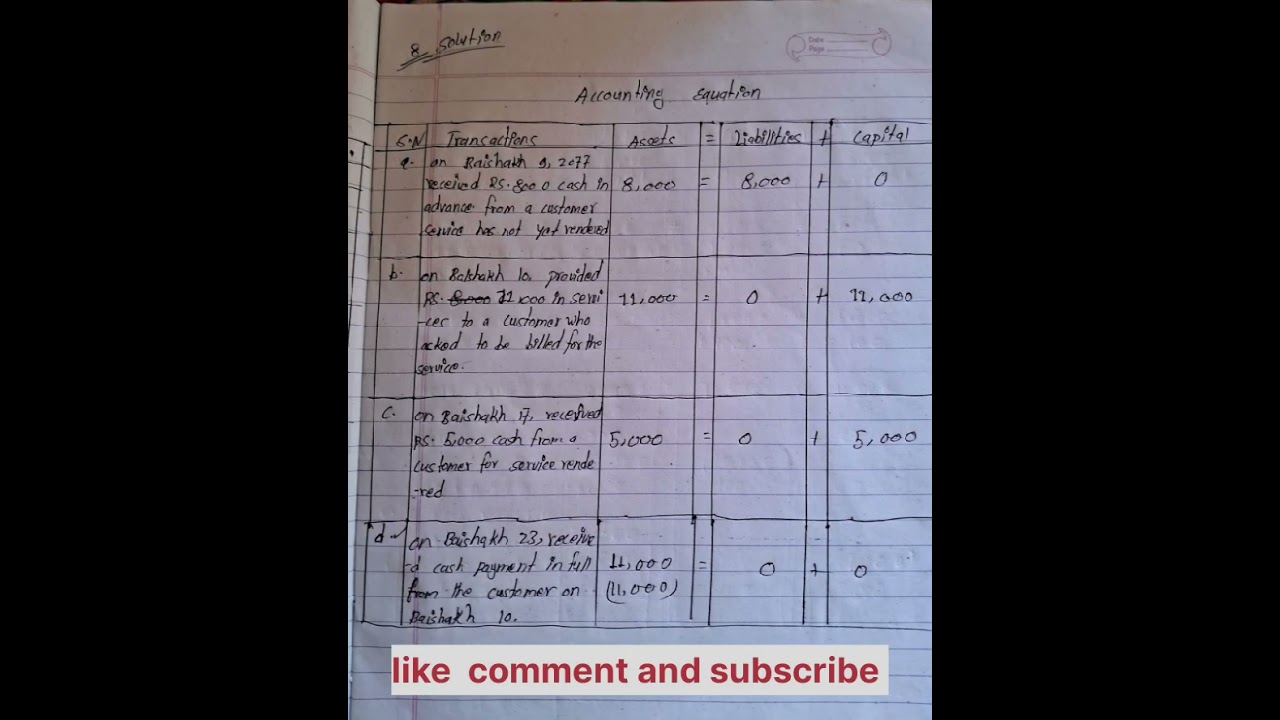 8 solution
Date
Page
Accounting equation
S.N Transactions Assets = Liabilities + Capital
a. on Baishakh 9, 2077
received Rs. 8000 cash in 8,000 = 8,000 + 0
advance from a customer
service has not yet rendered
b. on Baishakh 10, provided
RS. 8,000 11,000 in servi 11,000 = 0 + 11,000
-ces to a customer who
asked to be billed for the
service.
c. on Baishakh 17, received
RS. 5,000 cash from a 5,000 = 0 + 5,000
customer for service rende
-red
d on Baishakh 23, receive
-d cash payment in full 11,000 = 0 + 0
from the customer on (11,000)
Baishakh 10.
like comment and subscribe